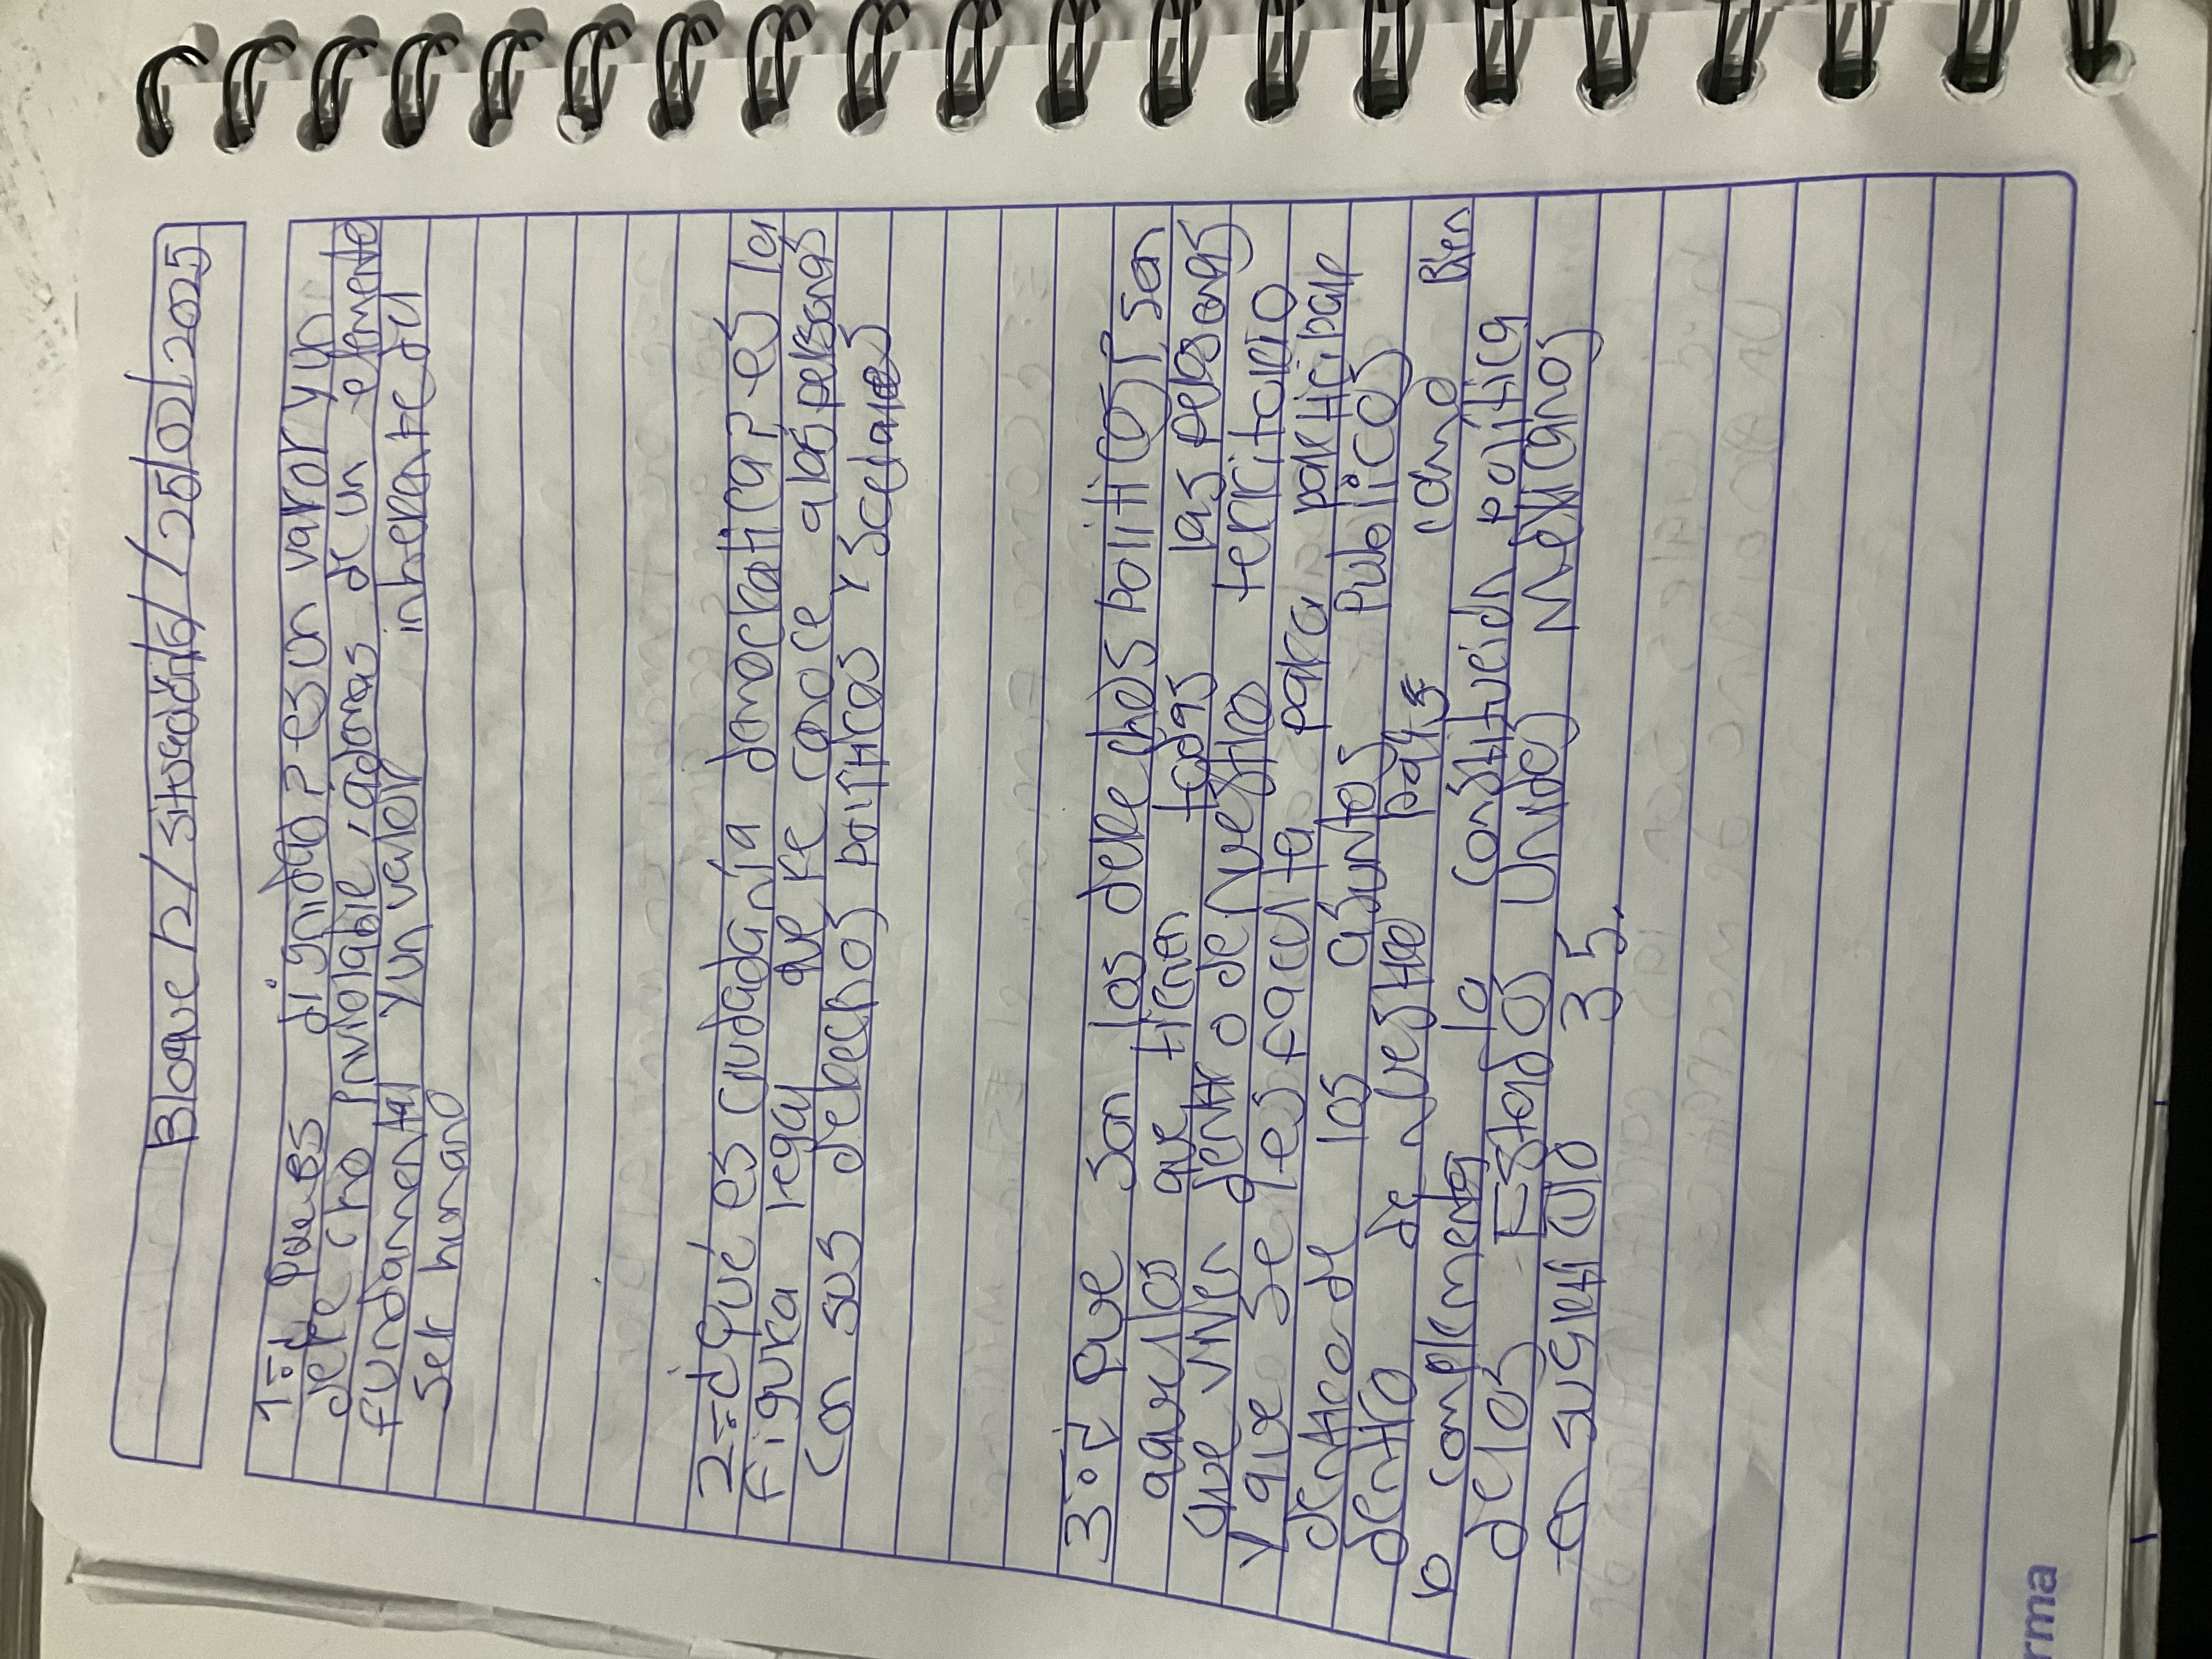 Bloque 12/situación6//25/02/2025
1=¿ Que es dignidad? es un varor y un
dere cho inviolable, ademas de un elemento
fundamental y un valor inherente del
ser humano
2=¿Qué es ciudadanía democratica? es la
figura regal que re conoce a las personas
con sus derechos políticos y
3=¿ Que son los dere chos politicos? son
aquellos que tienen todas las personas
que viven dentro de Nuestro territorio
y que se les faculta para participar
dentro de los asuntos publicos
dentro de Nuestro país como Bien
lo complementa la constitución politica
delos Estados Unidos Mexicanos
en su articulo 35.
rma